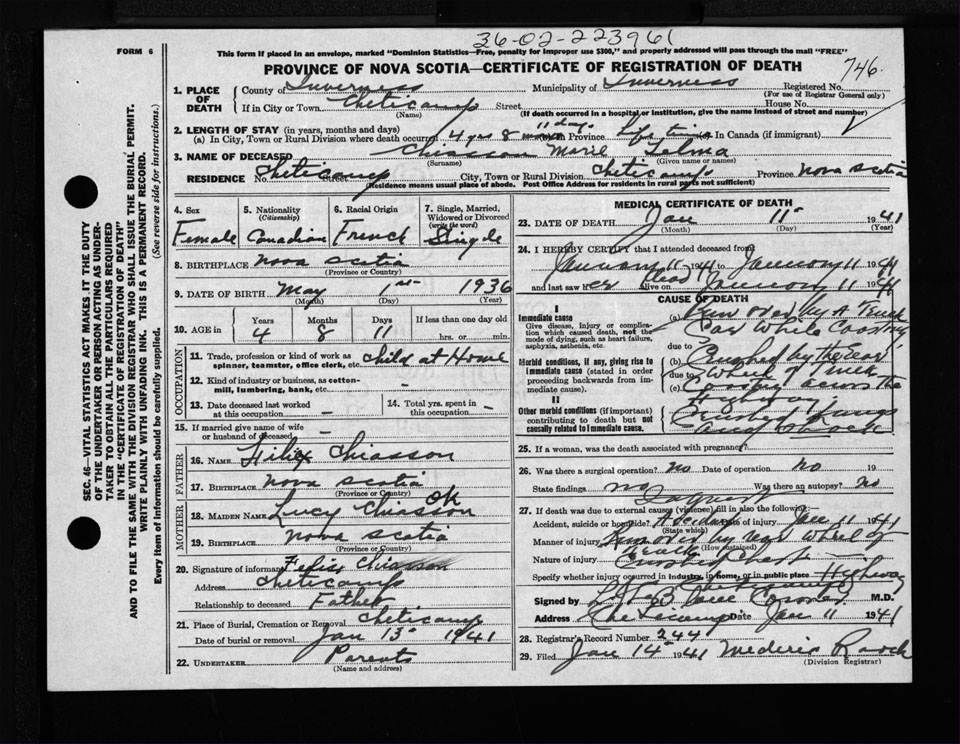 36-02-223961
FORM 6
This form if placed in an envelope, marked "Dominion Statistics—Free, penalty for improper use $300," and properly addressed will pass through the mail "FREE"
PROVINCE OF NOVA SCOTIA—CERTIFICATE OF REGISTRATION OF DEATH
746
1. PLACE OF DEATH
County of Inverness Municipality of Inverness Registered No.
(For use of Registrar General only)
If in City or Town Cheticamp Street House No.
(Name) (If death occurred in a hospital or institution, give the name instead of street and number)
2. LENGTH OF STAY (in years, months and days)
(a) In City, Town or Rural Division where death occurred 4 yrs 8 11 days In Province Life time In Canada (if immigrant)
3. NAME OF DECEASED Chiasson Marie Zelma
(Surname) (Given name or names)
RESIDENCE No. Cheticamp Street City, Town or Rural Division Cheticamp Province Nova Scotia
(Residence means usual place of abode. Post Office Address for residents in rural parts not sufficient)
4. Sex Female
5. Nationality (Citizenship) Canadian
6. Racial Origin French
7. Single, Married, Widowed or Divorced (write the word) Single
8. BIRTHPLACE Nova Scotia
(Province or Country)
9. DATE OF BIRTH May 1st 1936
(Month) (Day) (Year)
10. AGE in Years Months Days If less than one day old
4 8 11 hrs. or min.
OCCUPATION
11. Trade, profession or kind of work as spinner, teamster, office clerk, etc. Child at Home
12. Kind of industry or business, as cotton-mill, lumbering, bank, etc. -
13. Date deceased last worked at this occupation -
14. Total yrs. spent in this occupation -
15. If married give name of wife or husband of deceased -
FATHER
16. NAME Chiasson
17. BIRTHPLACE Nova Scotia
(Province or Country)
MOTHER
18. MAIDEN NAME Lucy Chiasson OK
19. BIRTHPLACE Nova Scotia
(Province or Country)
20. Signature of informant Felix Chiasson
Address Cheticamp
Relationship to deceased Father
21. Place of Burial, Cremation or Removal Cheticamp
Date of burial or removal Jan 13 1941
22. UNDERTAKER Parents
(Name and address)
MEDICAL CERTIFICATE OF DEATH
23. DATE OF DEATH Jan 11 1941
(Month) (Day) (Year)
24. I HEREBY CERTIFY that I attended deceased from
January 11 1941 to January 11 1941
and last saw her dead alive on January 11 1941
CAUSE OF DEATH
I
Immediate cause
Give disease, injury or complication which caused death, not the mode of dying, such as heart failure, asphyxia, asthenia, etc.
(a) Run over by a Truck
Car While Coasting
due to
Morbid conditions, if any, giving rise to immediate cause (stated in order proceeding backwards from immediate cause).
(b) Crushed by the rear
due to wheel of Truck
(c) across the
Highway
II
Other morbid conditions (if important) contributing to death but not causally related to immediate cause.
Crushed Lungs
and Shock
25. If a woman, was the death associated with pregnancy?
26. Was there a surgical operation? no Date of operation no 19
State findings no Inquest Was there an autopsy? no
27. If death was due to external causes (violence) fill in also the following:
Accident, suicide or homicide? Accident Date of injury Jan 11 1941
(State which)
Manner of injury Run over by rear wheel of
Truck (How sustained)
Nature of injury Crushed Chest
Specify whether injury occurred in industry, in home, or in public place Highway
Signed by Coroner M.D.
Address Cheticamp Date Jan 11 1941
28. Registrar's Record Number 244
29. Filed Jan 14 1941 Mederic
(Division Registrar)
SEC. 46—VITAL STATISTICS ACT MAKES IT THE DUTY
OF THE UNDERTAKER OR PERSON ACTING AS UNDER-
TAKER TO OBTAIN ALL THE PARTICULARS REQUIRED
IN THE "CERTIFICATE OF REGISTRATION OF DEATH"
AND TO FILE THE SAME WITH THE DIVISION REGISTRAR WHO SHALL ISSUE THE BURIAL PERMIT.
WRITE PLAINLY WITH UNFADING INK. THIS IS A PERMANENT RECORD.
Every item of information should be carefully supplied. (See reverse side for instructions.)